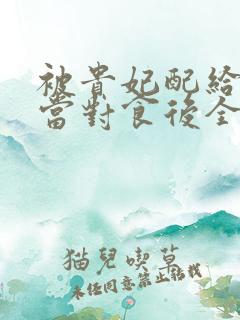 被貴妃配給
當對食後全
猫兒喫草
未任同意禁止转载